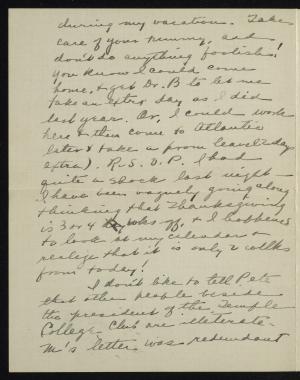 during my vacation. Take
care of your tummy, and
don't do anything foolish!
You know I could come
home, & get Dr. B to let me
take an extra day, as I did
last year. Or, I could work
here & then come to Atlantic
later & take a prom leave (2 days
extra). R.S.V.P. I had
quite a shock last night –
I have been vaguely going along
thinking that Thanksgiving
is 3 or 4 wks off, & I happened
to look at my calendar &
realize that it is only 2 weeks
from today!
I don't like to tell Pete
that other people beside
the president of the Temple
College Club are illiterate –
M's letter was redundant